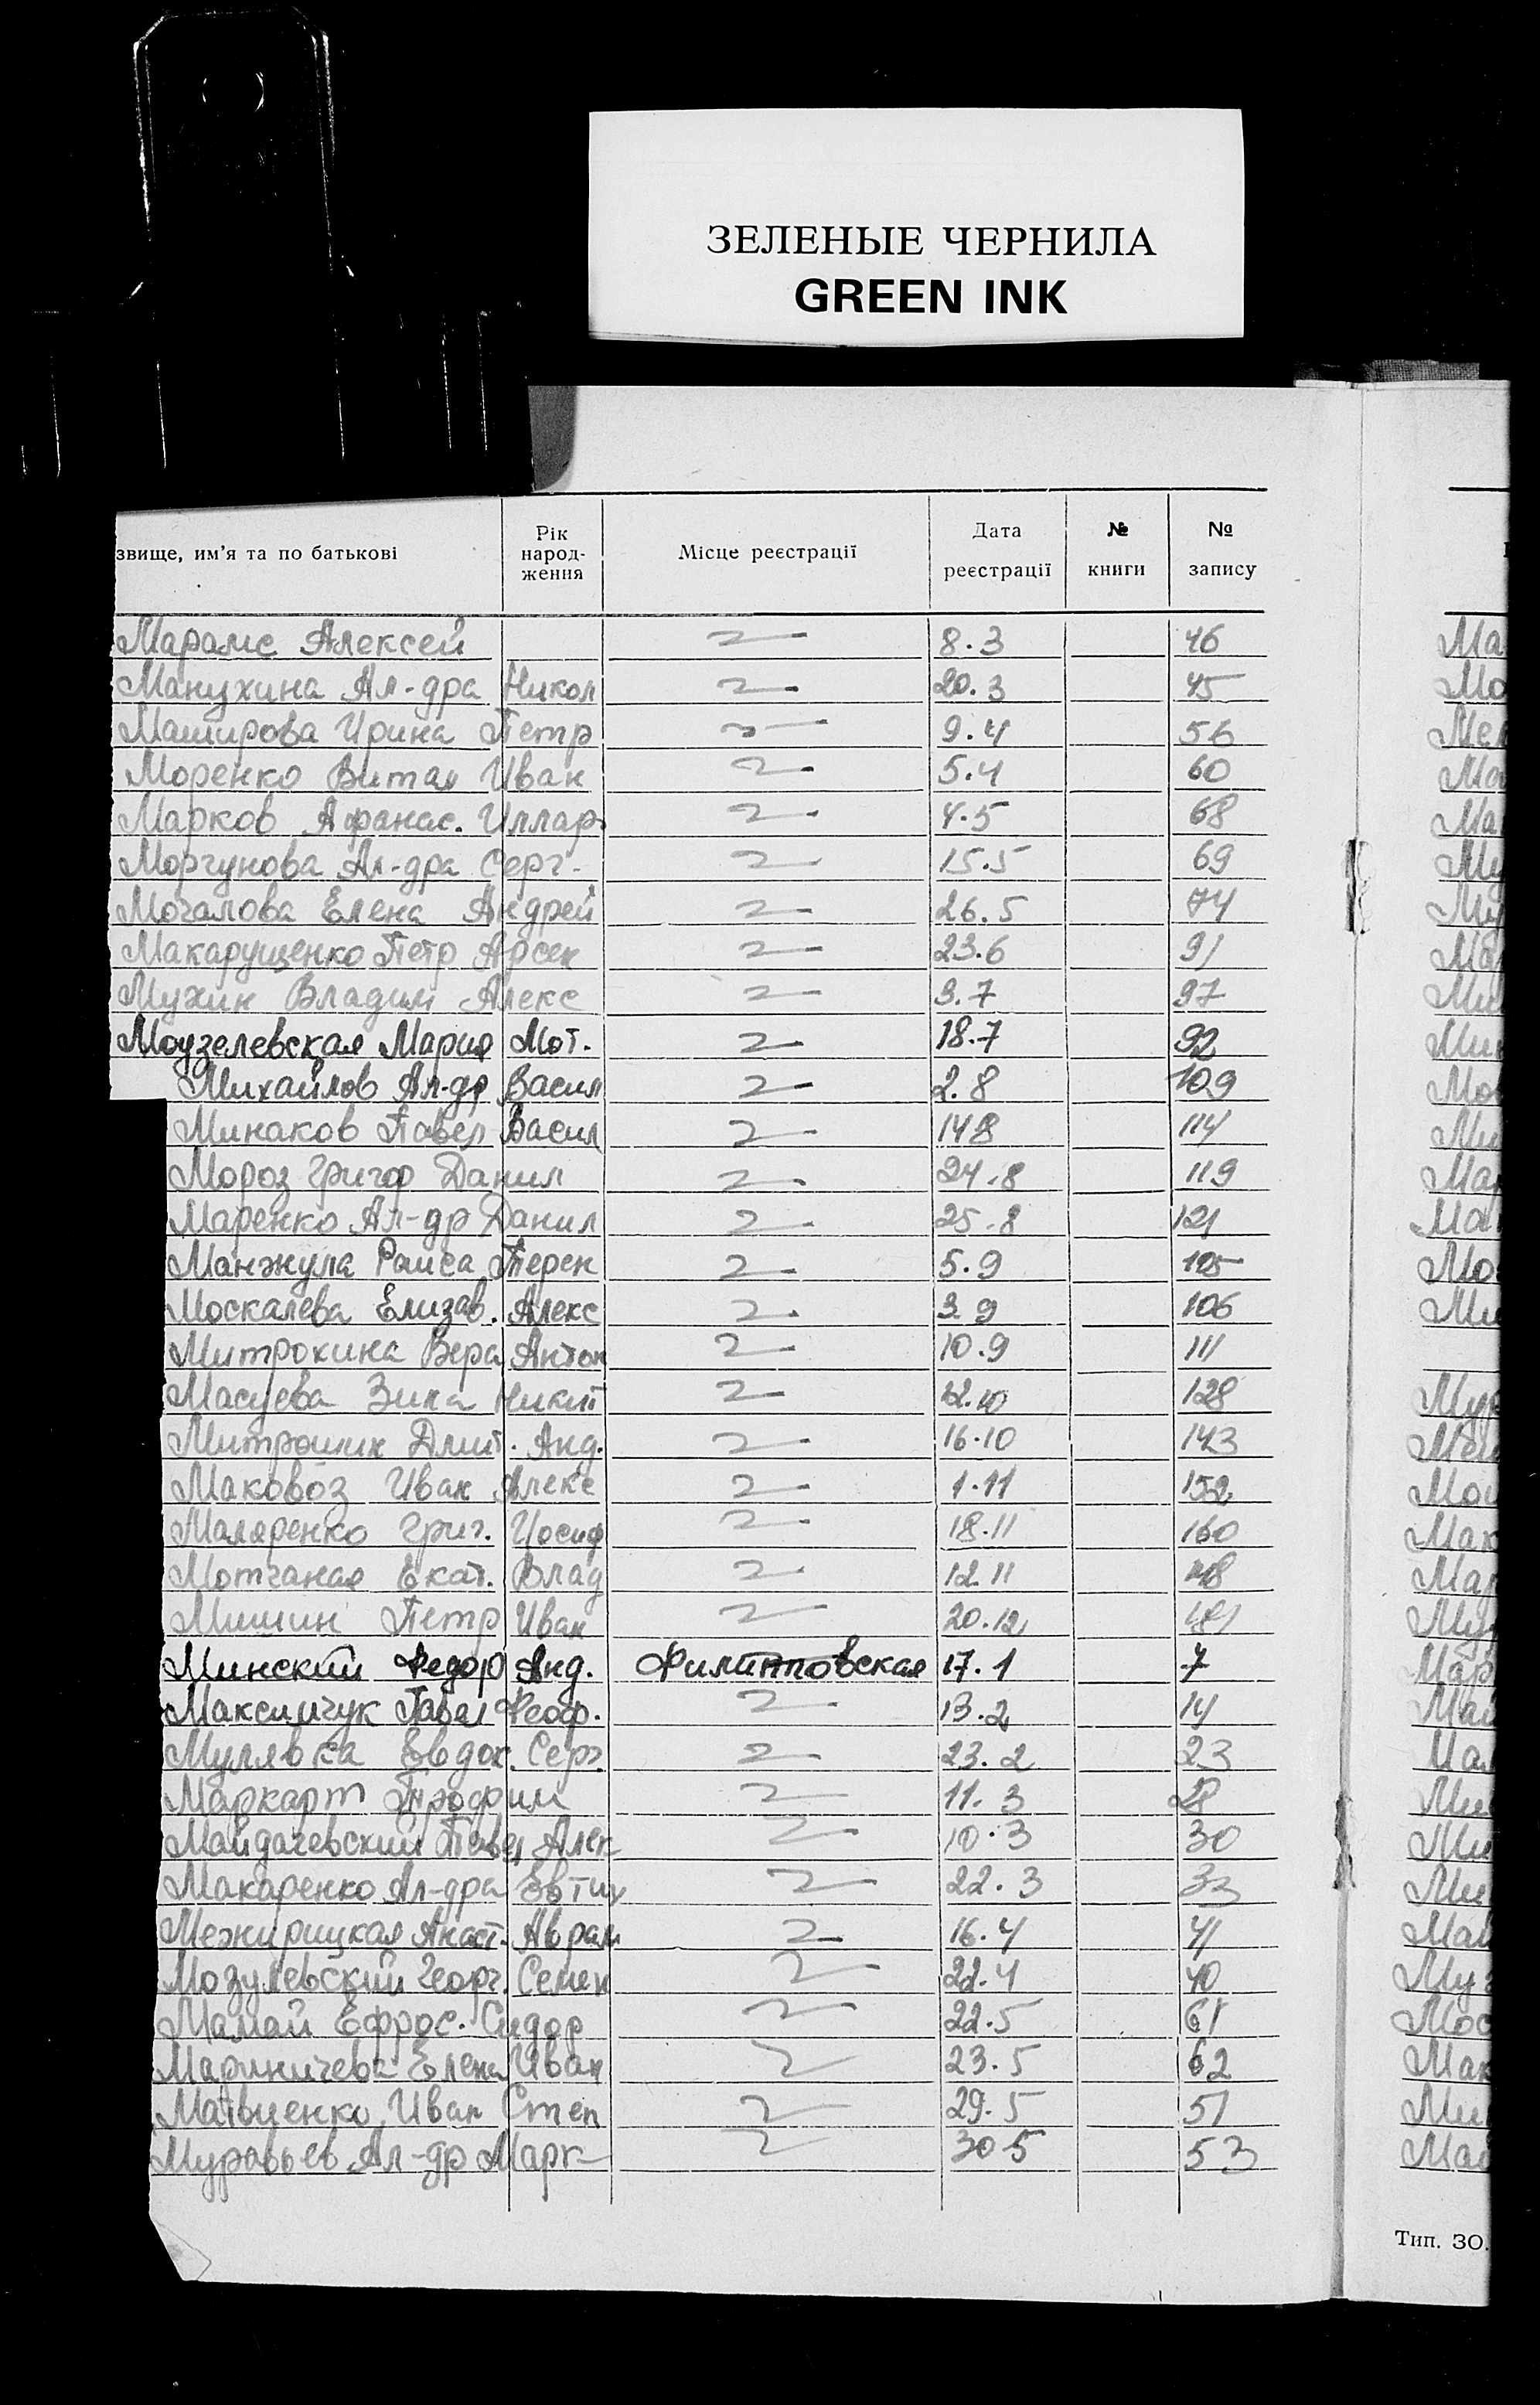 ЗЕЛЕНЫЕ ЧЕРНИЛА
GREEN INK
звище, им'я та по батькові Рік народ-ження Місце реєстрації Дата реєстрації № книги № запису
Марамс Алексей 8.3 46
Манухина Ал-дра Никол 20.3 45
Маширова Ирина Петр 9.4 56
Моренко Витал Иван 5.4 60
Марков Афанас. Иллар 4.5 68
Моргунова Ал-дра Серг. 15.5 69
Мочалова Елена Андрей 26.5 74
Макарущенко Петр Арсен 23.6 91
Мухин Владим Алекс 3.7 97
Моузелевская Мария Мот. 18.7 92
Михайлов Ал-др Васил 2.8 109
Минаков Павел Васил 14 8 114
Мороз Григор Данил 24.8 119
Маренко Ал-др Данил 25.8 121
Манжула Раиса Терен 5.9
Москалева Елизав. Алекс 3.9 106
Митрохина Вера Антон 10.9 111
Масуева Зина Никит 12.10 128
Митрошин Дмит. Анд. 16.10 143
Маковоз Иван Алекс 1.11 152
Маляренко Григ. Иосиф 18.11 160
Мотчаная Екат. Влад 12.11
Мишин Петр Иван 20.12 181
Минский Федор Анд. Филипповская 17.1 7
Максимчук Павел Феоф. 13.2 14
Мулявка Евдок. Серг. 23.2 23
Маркарт Трофим 11.3 28
Майдачевский Павел Алек 10.3 30
Макаренко Ал-дра Евтих 22.3 33
Межирицкая Анаст. Аврам 16.4 41
Мозулевский Георг. Семен 22.4 40
Мамай Ефрос. Сидор 22.5 61
Мариничева Елена Иван 23.5 62
Матвиенко Иван Степ 29.5 51
Муравьев Ал-др Марк 30 5 53
Тип. ЗО.